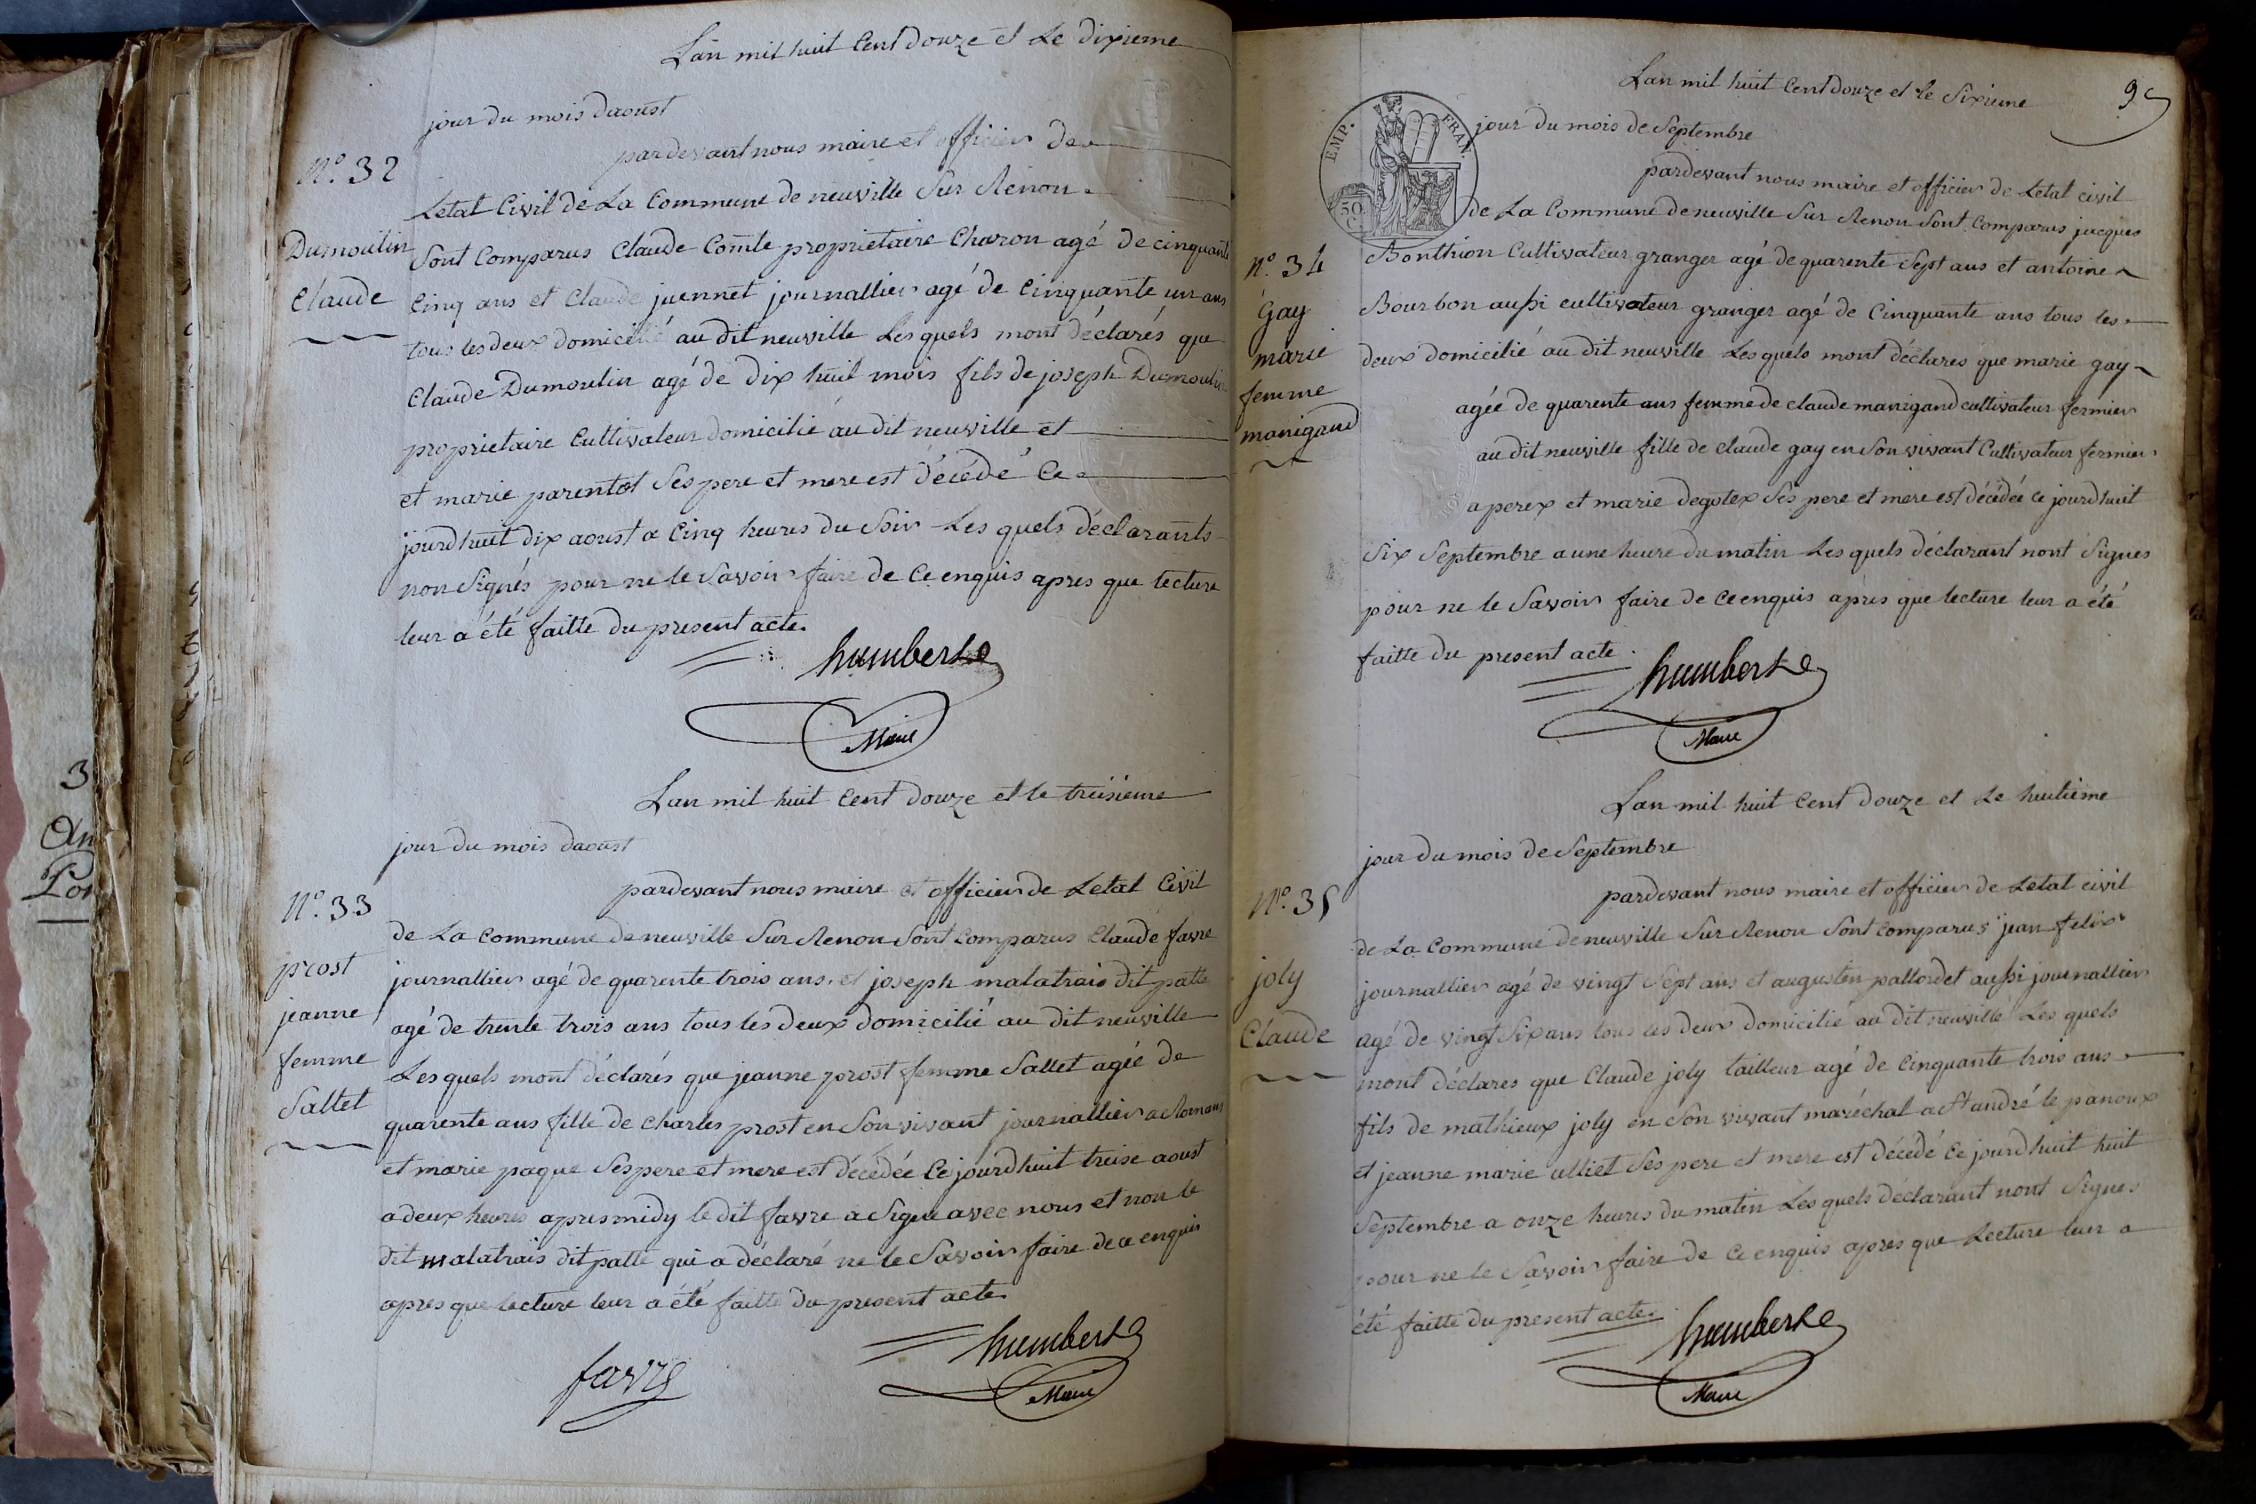 Lan mil huit Cent douze et Le dixieme
jour du mois daoust
pardevant nous maire et officier de
N.o 32
Letat Civil de La Commune de neuville Sur Renon
Dumoulin
Claude
Sont Comparus Claude Comte proprietaire Charon agé de cinquante
Cinq ans et Claude juennet journallier agé de Cinquante un ans
tous les deux domicilié au dit neuville Les quels mont déclarés que
Claude Dumoulin agé de dix huit mois fils de joseph Dumoulin
proprietaire Cultivateur domicilié au dit neuville et
et marie parentet Ses pere et mere est décédé Ce
jourdhuit dix aoust a Cinq heures du Soir Les quels déclarants
non Signés pour ne le Savoir faire de Ce enquis apres que lecture
leur a été faitte du present acte.
humbert
Maire
Lan mil huit Cent douze et le treisieme
jour du mois daoust
pardevant nous maire et officier de Letat Civil
N.o 33
prost
jeanne
femme
Sallet
de La Commune de neuville Sur Renon Sont Comparus Claude favre
journallier agé de quarente trois ans et joseph malatrais dit patte
agé de trente trois ans tous les deux domicilié au dit neuville
Les quels mont déclarés que jeanne prost femme Sallet agée de
quarente ans fille de Charles prost en Son vivant journallier a Romans
et marie paque Ses pere et mere est décédée Ce jourdhuit treise aoust
a deux heures apres midy le dit favre a Signé avec nous et non le
dit malatrais dit patte qui a déclaré ne le Savoir faire de ce enquis
apres que lecture leur a été faitte du present acte
favre
humbert
Maire
Lan mil huit Cent douze et le Sixieme
jour du mois de Septembre
EMP. FRAN.
50 C
pardevant nous maire et officier de Letat civil
de La Commune de neuville Sur Renon Sont Comparus jacques
N.o 34
Gay
marie
femme
manigand
Bonthion Cultivateur granger agé de quarente Sept ans et antoine
Bourbon aussi cultivateur granger agé de Cinquante ans tous les
deux domicilié au dit neuville Les quels mont déclares que marie gay
agée de quarente ans femme de claude manigand cultivateur fermier
au dit neuville fille de claude gay en Son vivant Cultivateur fermier
a perex et marie degotex Ses pere et mere est décédée ce jourdhuit
Six Septembre a une heure du matin Les quels déclarant nont Signes
pour ne le Savoir faire de Ce enquis apres que lecture leur a été
faitte du present acte.
humbert
Maire
Lan mil huit Cent douze et Le huitieme
jour du mois de Septembre
pardevant nous maire et officier de Letat civil
N.o 35
joly
Claude
de La Commune de neuville Sur Renon Sont comparus jean felix
journallier agé de vingt Sept ans et augustin pallordet aussi journallier
agé de vingt Six ans tous les deux domicilié au dit neuville Les quels
mont déclares que Claude joly tailleur agé de Cinquante trois ans
fils de mathieux joly en Son vivant maréchal a St andré le panoux
et jeanne marie ulliet Ses pere et mere est décédé ce jourdhuit huit
Septembre a onze heures du matin Les quels déclarant nont Signes
pour ne le Savoir faire de Ce enquis apres que Lecture leur a
été faitte du present acte.
humbert
Maire